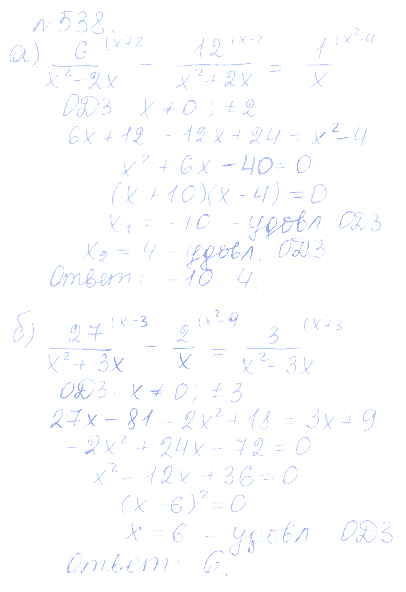 № 538.
а) 6/(x² - 2x) (x+2 - 12/(x² + 2x) (x-2 = 1/x (x²-4
ОДЗ: x ≠ 0 ; ±2
6x + 12 - 12x + 24 = x² - 4
x² + 6x - 40 = 0
(x + 10)(x - 4) = 0
x₁ = -10 - удовл. ОДЗ
x₂ = 4 - удовл. ОДЗ
Ответ: -10, 4.
б) 27/(x² + 3x) (x-3 - 2/x (x²-9 = 3/(x² - 3x) (x+3
ОДЗ: x ≠ 0; ±3
27x - 81 - 2x² + 18 = 3x + 9
-2x² + 24x - 72 = 0
x² - 12x + 36 = 0
(x - 6)² = 0
x = 6 - удовл ОДЗ
Ответ: 6.